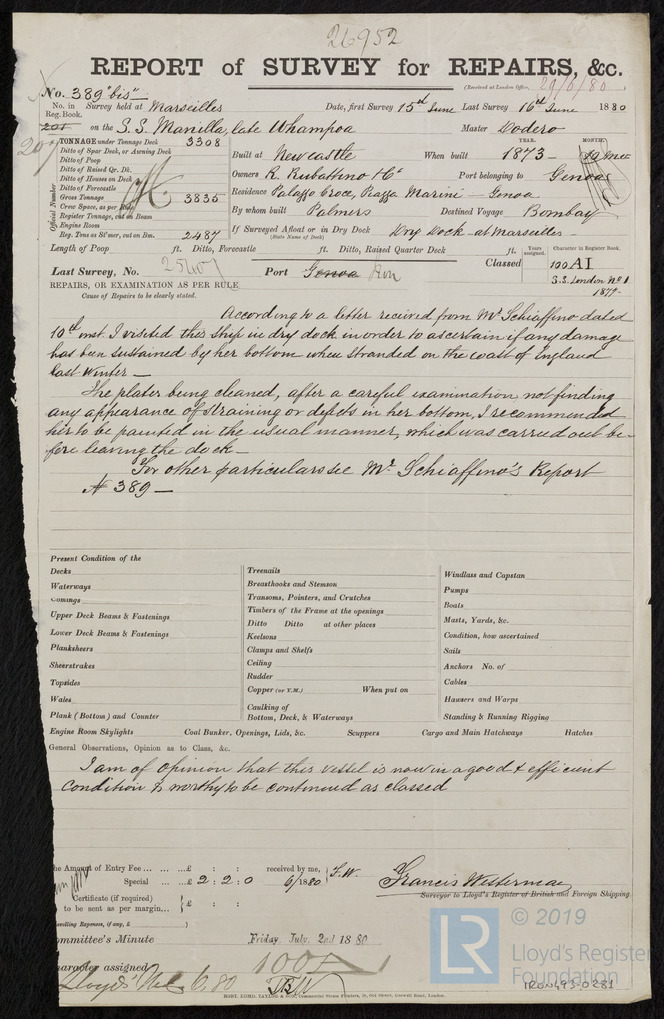 26952
REPORT of SURVEY for REPAIRS, &c.
(Received at London Office, 29/6/80 )
No. 389 "bis"
No. in Reg. Book. Survey held at Marseilles Date, first Survey 15th June Last Survey 16th June 1880
201 on the S.S. Manilla, late Whampoa Master Dodero
207
TONNAGE under Tonnage Deck 3308
Ditto of Spar Deck, or Awning Deck
Ditto of Poop
Ditto of Raised Qr. Dk.
Ditto of Houses on Deck
Ditto of Forecastle
Gross Tonnage 3835
Crew Space, as per Rule
Register Tonnage, cut on Beam
Engine Room
Reg. Tons as St'mer, cut on Bm. 2487
Official Number
Built at Newcastle When built YEAR. 1873 MONTH.
Owners R. Rubattino & Co Port belonging to Genoa
Residence Palazzo Croce, Piazza Marini - Genoa
By whom built Palmers Destined Voyage Bombay
If Surveyed Afloat or in Dry Dock Dry Dock at Marseilles
(State Name of Dock)
Length of Poop ft. Ditto, Forecastle ft. Ditto, Raised Quarter Deck ft.
Years assigned. Character in Register Book.
Last Survey, No. Port Genoa Iron Classed 100 A1
S.S. London No 1
1879-
REPAIRS, OR EXAMINATION AS PER RULE
Cause of Repairs to be clearly stated.
According to a letter received from Mr Schiaffino dated
10th inst. I visited this ship in dry dock in order to ascertain if any damage
has been sustained by her bottom when stranded on the coast of England
last Winter -
The plates being cleaned, after a careful examination, not finding
any appearance of straining or defects in her bottom, I recommended
her to be painted in the usual manner, which was carried out be-
fore leaving the dock -
For other particulars see Mr Schiaffino's Report
No 389 -
Present Condition of the
Decks
Waterways
Comings
Upper Deck Beams & Fastenings
Lower Deck Beams & Fastenings
Planksheers
Sheerstrakes
Topsides
Wales
Plank (Bottom) and Counter
Treenails
Breasthooks and Stemson
Transoms, Pointers, and Crutches
Timbers of the Frame at the openings
Ditto Ditto at other places
Keelsons
Clamps and Shelfs
Ceiling
Rudder
Copper (or Y.M.) When put on
Caulking of
Bottom, Deck, & Waterways
Windlass and Capstan
Pumps
Boats
Masts, Yards, &c.
Condition, how ascertained
Sails
Anchors No. of
Cables
Hawsers and Warps
Standing & Running Rigging
Engine Room Skylights Coal Bunker, Openings, Lids, &c. Scuppers Cargo and Main Hatchways Hatches
General Observations, Opinion as to Class, &c.
I am of opinion that this vessel is now in a good & efficient
condition & worthy to be continued as classed
he Amount of Entry Fee ... ... ...£ : : received by me, F.W.
Special ... ...£ 2 : 2 : 0 6/1880
Francis Westerman
Surveyor to Lloyd's Register of British and Foreign Shipping
Certificate (if required)
to be sent as per margin... } £ : :
velling Expenses, if any, £ )
ommittee's Minute Friday, July, 2nd 1880
haracter assigned 100 A
Lloyds' 6.80
ROBT. EDMD. TAYLOR & SON, Commercial Steam Printers, 19, Old Street, Goswell Road, London.
© 2019
Lloyd's Register
Foundation
LR
IRON493-0281